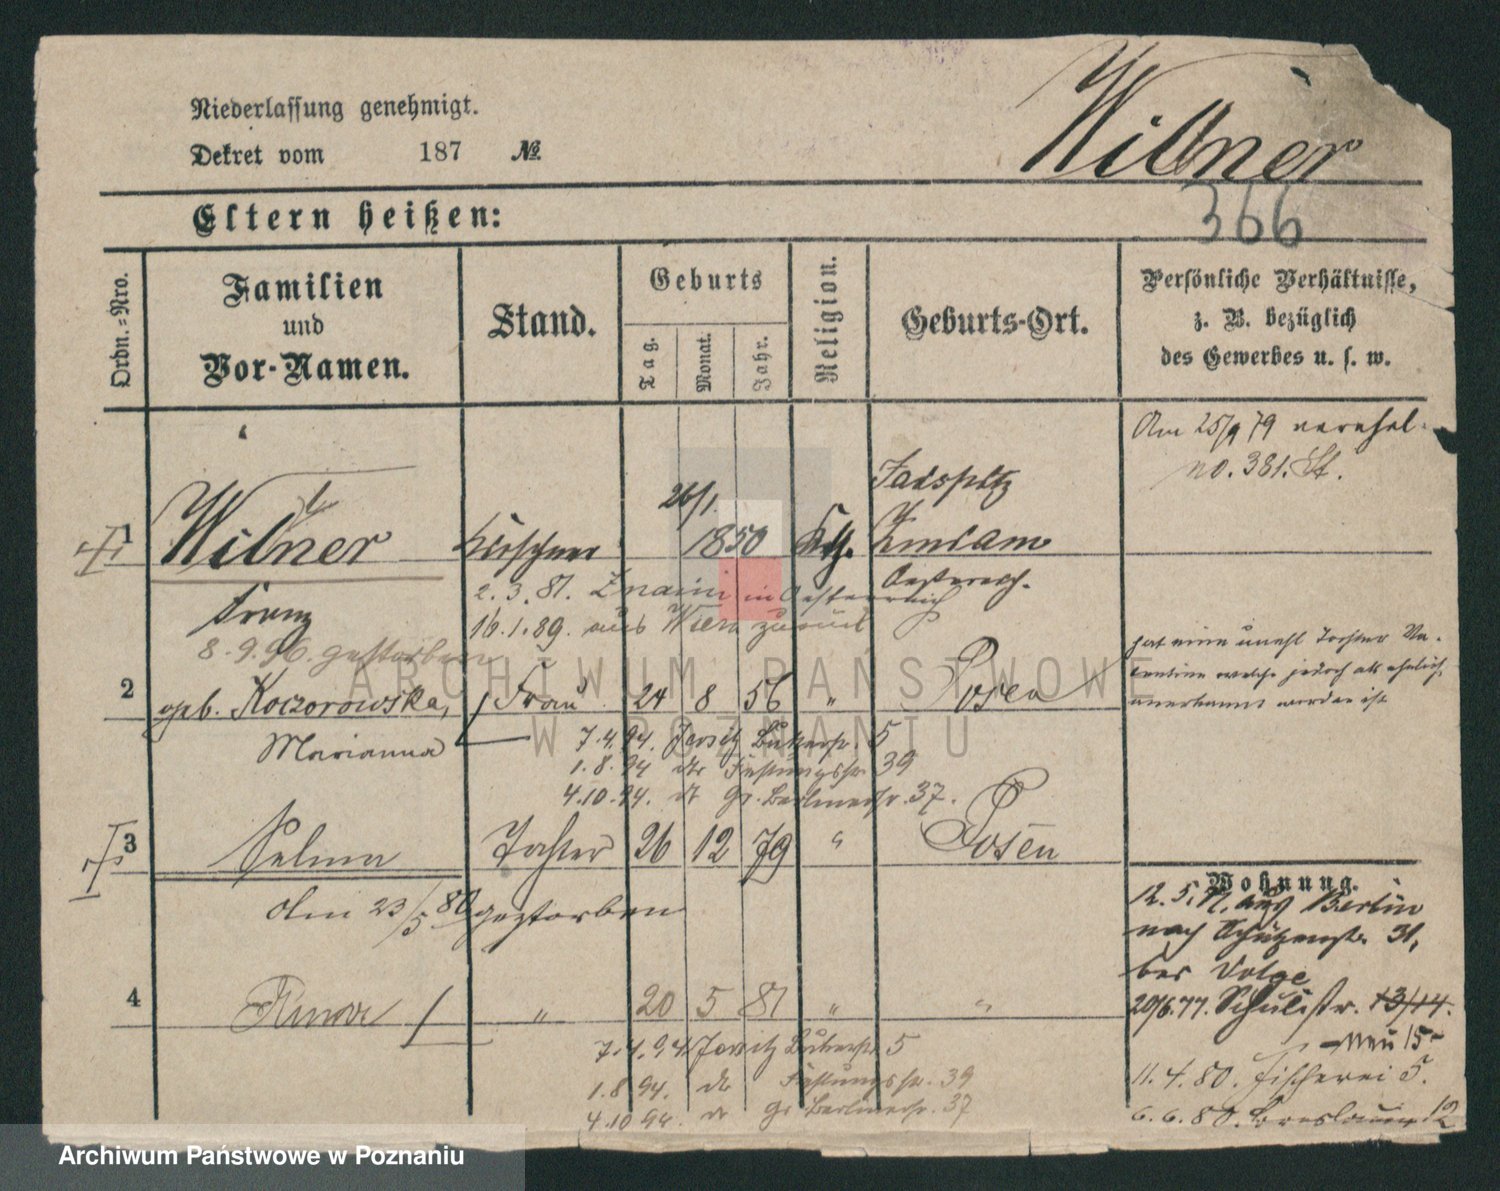 Niederlassung genehmigt.
Dekret vom 187 №
Wilner
Eltern heißen:
366
Ordn.=Nro.
Familien
und
Vor-Namen.
Stand.
Geburts
Tag.
Monat.
Jahr.
Religion.
Geburts-Ort.
Persönliche Verhältnisse,
z. B. bezüglich
des Gewerbes u. s. w.
Am 25/9 79 verehel.
no. 381. St.
1
Wilner
Kürschner
26/1.
1850
Kth.
Oesterreich.
2. 3. 81. Znaim in Oesterreich
Franz
16. 1. 89. aus Wien zurück
8. 9. 96. gestorben
hat eine unehl Tochter Va-
lentine welche jedoch als ehelich
anerkannt worden ist
2
geb. Koczorowska,
Frau
24 8 56 " Posen
Marianna
7. 4. 94. Jersitz 5
1. 8. 94 do Festungsstr. 39
4. 10. 94. do Gr. Berlinerstr. 37.
3
Selma
Tochter
26 12 79 " Posen
Wohnung.
Am 23/5 80 gestorben
12. 5. aus Berlin
nach Schützenstr. 31,
bei
4
" 20 5 81 " "
20/6. 77. Schulstr. 13/14.
Neu 15
7. 4. 94 Jersitz 5
11. 4. 80. Fischerei 5.
1. 8 94. do Festungsstr. 39
4. 10 94. do Gr Berlinerstr. 37
6. 6. 80. Breslauer
ARCHIWUM PAŃSTWOWE
W POZNANIU
Archiwum Państwowe w Poznaniu